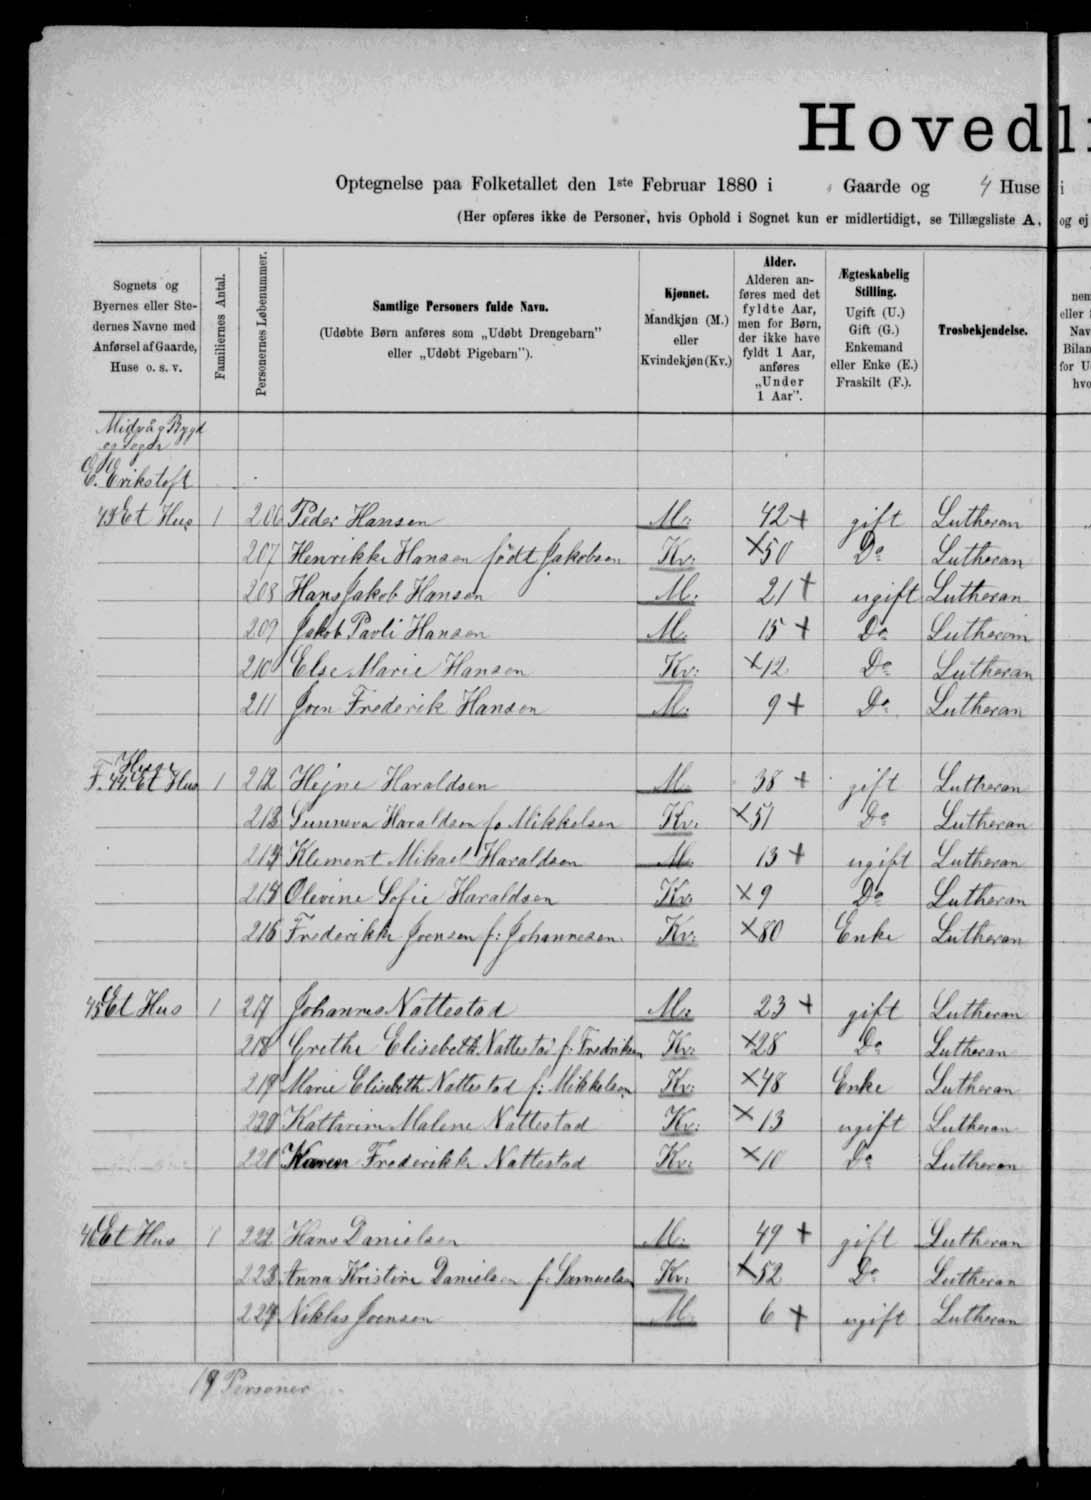 Hovedl
Optegnelse paa Folketallet den 1ste Februar 1880 i Gaarde og 4 Huse i
(Her opføres ikke de Personer, hvis Ophold i Sognet kun er midlertidigt, se Tillægsliste A, og ej
Sognets og Byernes eller Stedernes Navne med Anførsel af Gaarde, Huse o. s. v.
Familiernes Antal.
Personernes Løbenummer.
Samtlige Personers fulde Navn.
(Udøbte Børn anføres som „Udøbt Drengebarn”
eller „Udøbt Pigebarn”).
Kjønnet.
Mandkjøn (M.)
eller
Kvindekjøn (Kv.)
Alder.
Alderen anføres med det fyldte Aar, men for Børn, der ikke have fyldt 1 Aar, anføres „Under 1 Aar”.
Ægteskabelig Stilling.
Ugift (U.)
Gift (G.)
Enkemand
eller Enke (E.)
Fraskilt (F.).
Trosbekjendelse.
Midvåg Bygd
og Sogn
E. Erikstoft
43 Et Hus 1 206 Peder Hansen M: 42+ gift Lutheran
207 Henrikke Hansen født Jakobsen Kv: ×50 Do Lutheran
208 Hans Jakob Hansen M: 21+ ugift Lutheran
209 Jakob Pavli Hansen M: 15+ Do Lutheran
210 Else Marie Hansen Kv: ×12 Do Lutheran
211 Joen Frederik Hansen M: 9+ Do Lutheran
Husar
F. 44. Et Hus 1 212 Hejne Haraldsen M: 38+ gift Lutheran
213 Sunneva Haraldsen fo Mikkelsen Kv: ×51 Do Lutheran
214 Klement Mikael Haraldsen M: 13+ ugift Lutheran
215 Olevine Sofie Haraldsen Kv: ×9 Do Lutheran
216 Frederikke Joensen f: Johannesen Kv: ×80 Enke Lutheran
45 Et Hus 1 217 Johannes Nattestad M: 23+ gift Lutheran
218 Grethe Elisebeth Nattestad f: Fredriksen Kv: ×28 Do Lutheran
219 Marie Elisebeth Nattestad f: Mikkelsen Kv: ×48 Enke Lutheran
220 Kattarine Malene Nattestad Kv: ×13 ugift Lutheran
221 Karen Frederikke Nattestad Kv: ×10 Do Lutheran
46 Et Hus 1 222 Hans Danielsen M: 49+ gift Lutheran
223 Anna Kristine Danielsen f: Samuelsen Kv: ×52 Do Lutheran
224 Niklas Joensen M 6+ ugift Lutheran
19 Personer